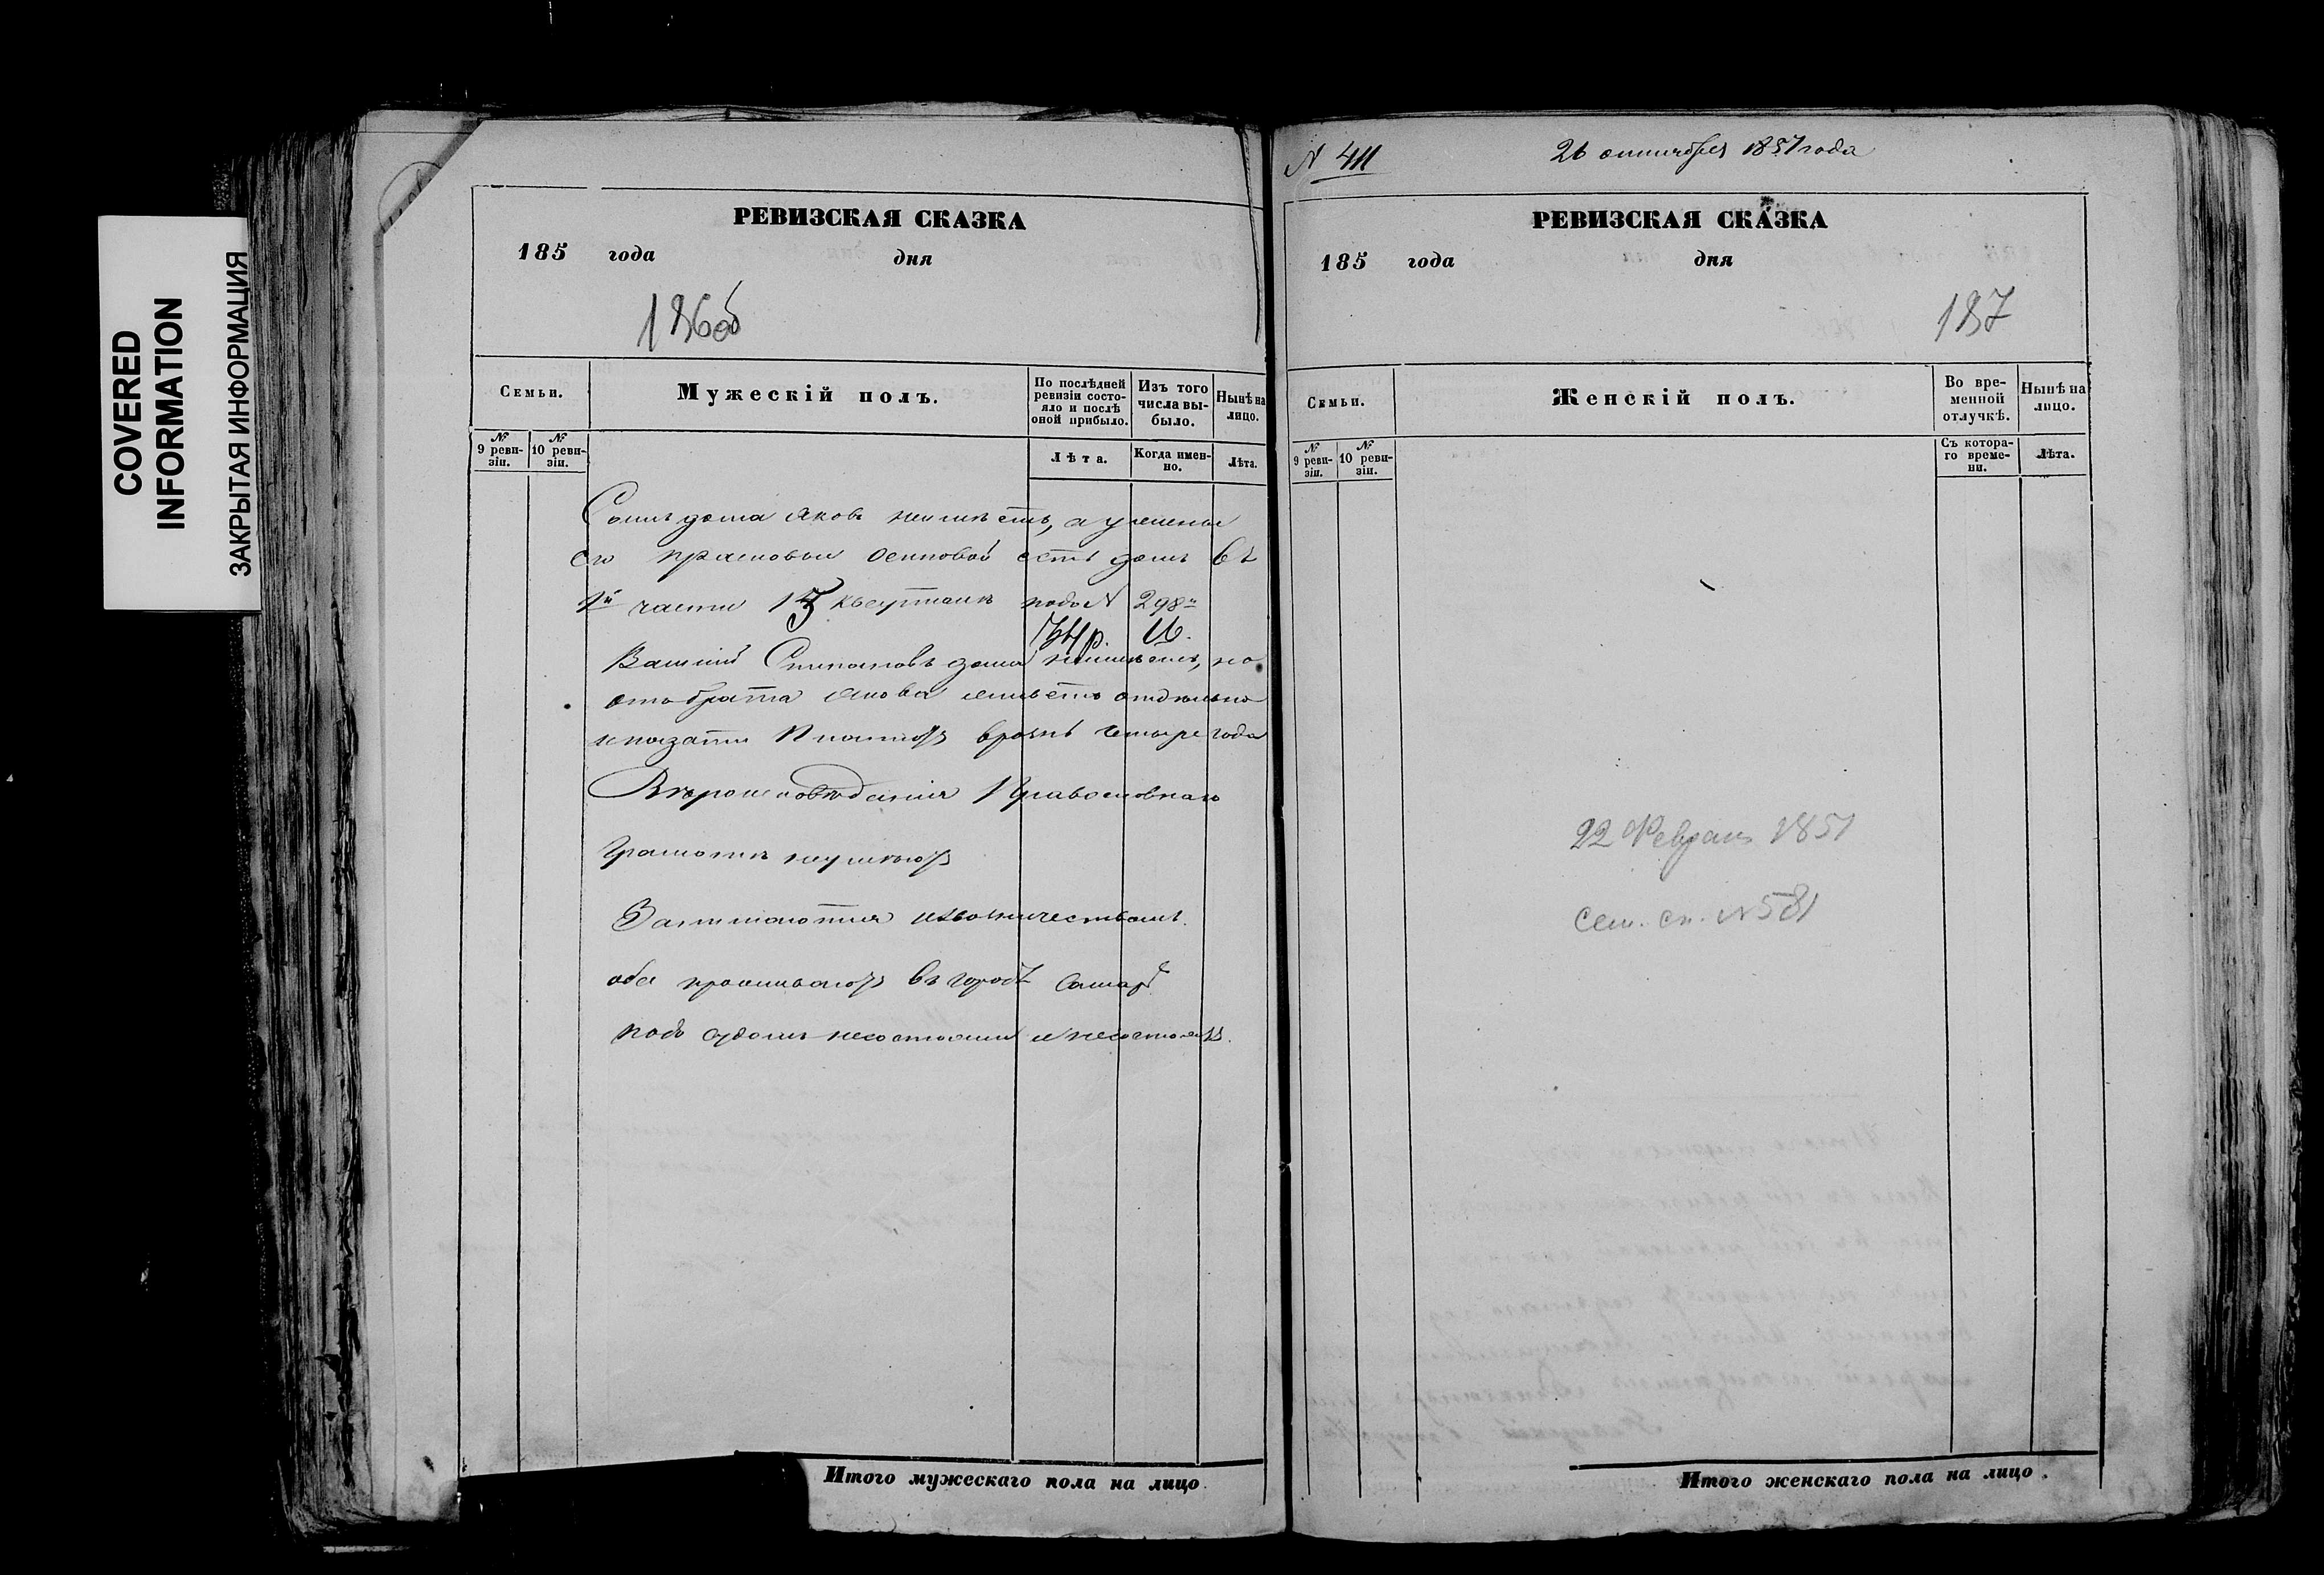 COVERED INFORMATION
ЗАКРЫТАЯ ИНФОРМАЦИЯ
РЕВИЗСКАЯ СКАЗКА
185 года дня
Семьи.
Мужескій полъ.
По послѣдней ревизіи состояло и послѣ оной прибыло.
Изъ того числа выбыло.
Нынѣ на лицо.
№ 9 ревизіи.
№ 10 ревизіи.
Лѣта.
Когда именно.
Лѣта.
дома Яковъ неимѣетъ, а у жены
его Прасковьи Осиповой есть домъ въ
1й части 15 квартала подъ № 298м
Василій Степановъ дома неимѣетъ, но
отъ брата Якова живетъ отдѣльно
четыре года
Вѣроисповѣданія Православнаго
Грамотѣ неумѣютъ
Занимаются извозничествомъ.
оба проживаютъ въ городѣ Самарѣ
подъ судомъ несостояли и несостоятъ.
Итого мужескаго пола на лицо
N 411
26 октября 1857 года
РЕВИЗСКАЯ СКАЗКА
185 года дня
187
Семьи.
Женскій полъ.
Во временной отлучкѣ.
Нынѣ на лицо.
№ 9 ревизіи.
№ 10 ревизіи.
Съ котораго времени.
Лѣта.
22 Февраля 1851
Сем. сп. № 581
Итого женскаго пола на лицо.